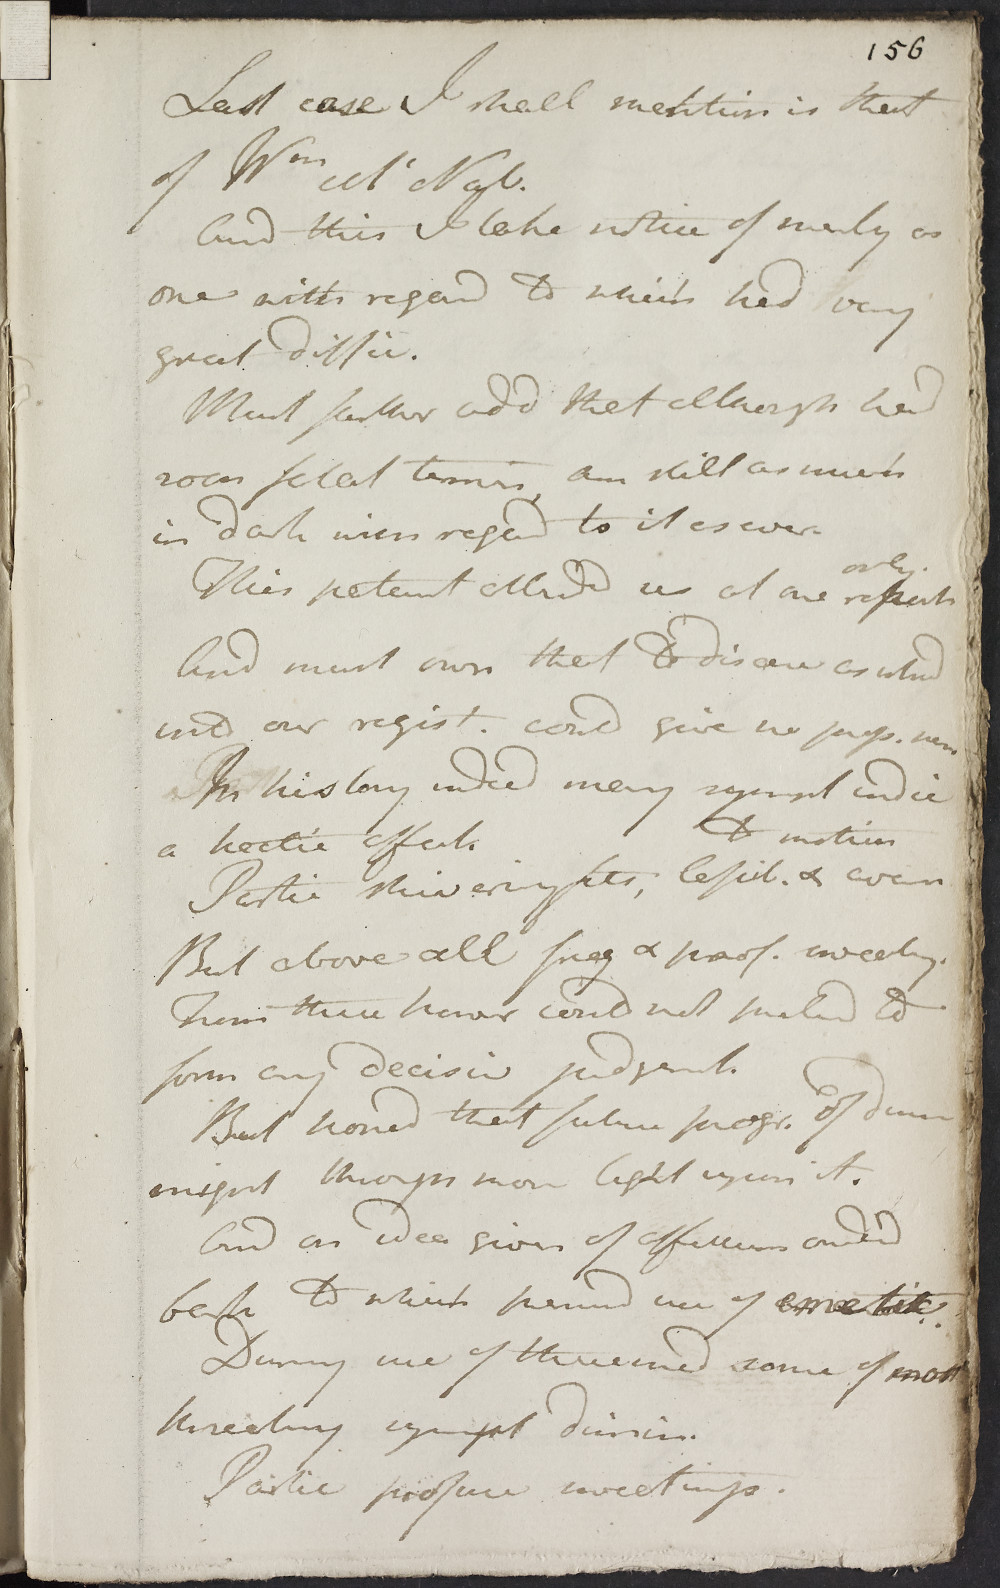 156
Last case I shall mention is that
of Wm McNab.
And this I take notice of merly as
one with regard to which had very
great diffic.
Must further add that although had
soon fatal termin, am still as much
in dark with regard to it as ever.
only.
This patient attended us at one report
And must own that to disease as stood
into our regist. could give no
In history indeed many sympt indic
a hectic affect.
to motion
Partic shivering fits, &
But above all freq & prof. sweating.
From these howr could not pretend to
form any decisiv judgment.
But hoped that future progr. of
might through more light upon it.
And an idea given of affections
to which
emetic.
During use of these ind some of most
threating sympt dimin.
Partic profuse sweetings.